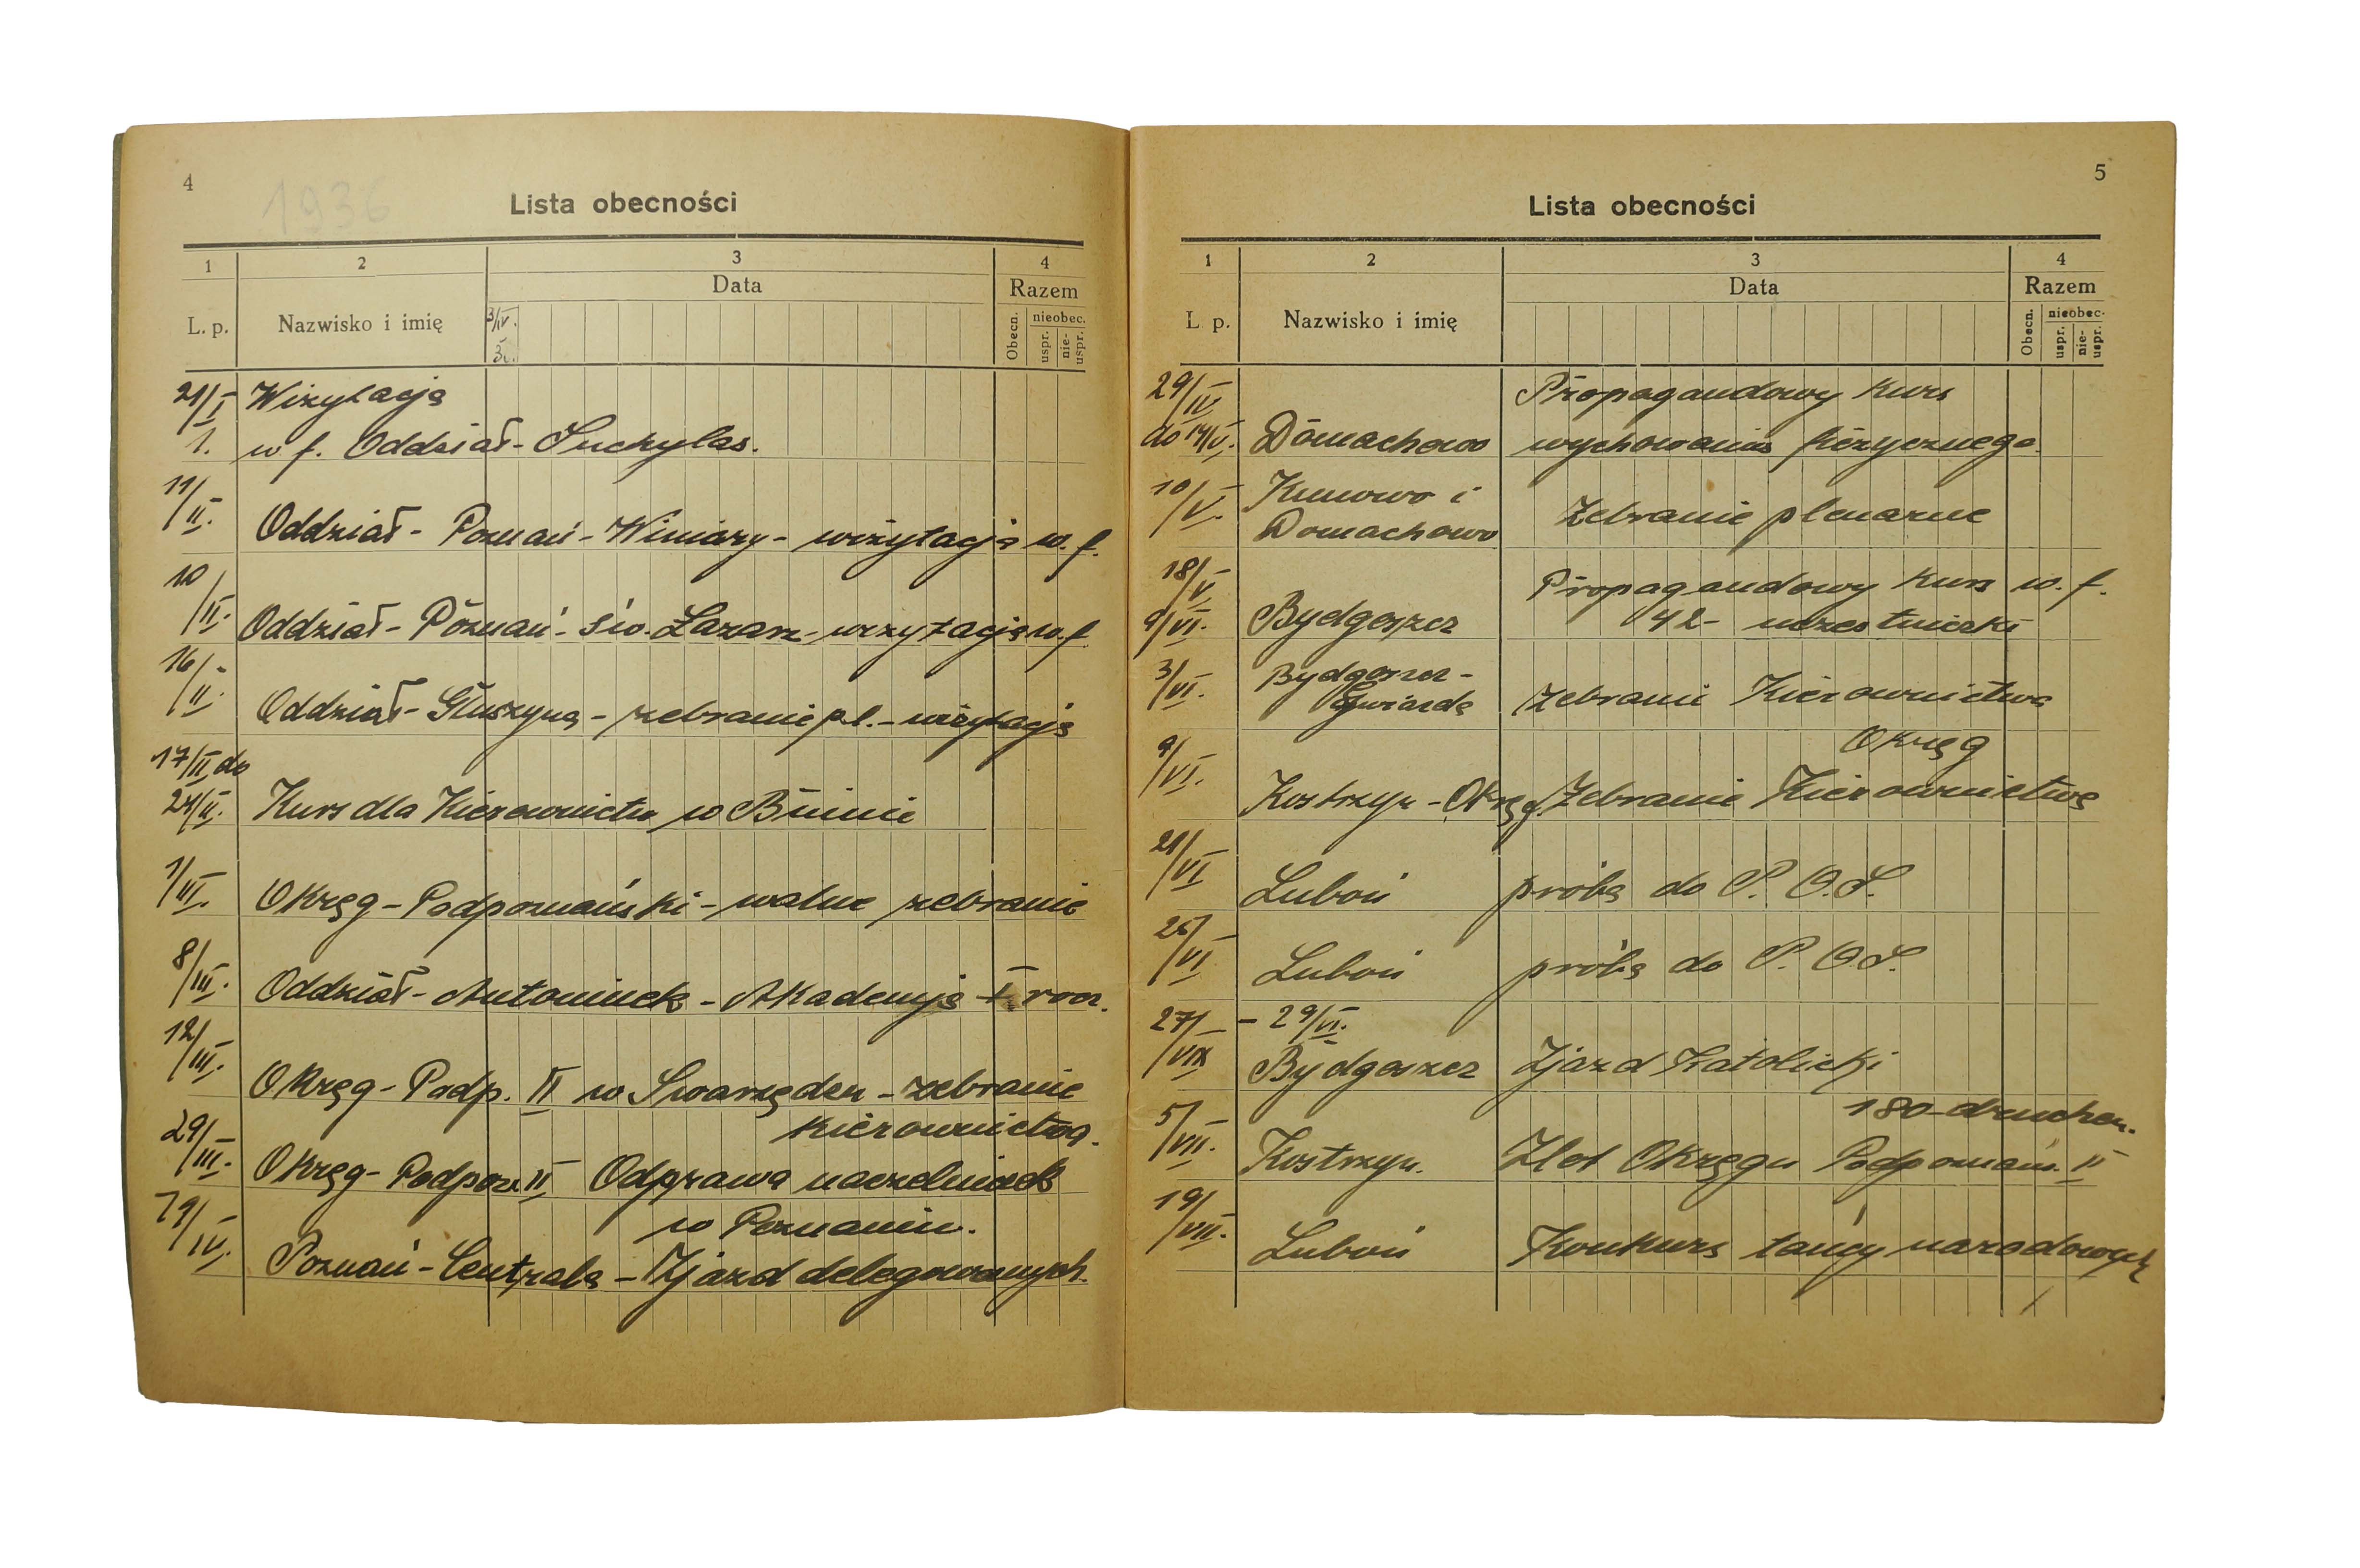 4
1936
Lista obecności
1 2 3 4
Data
Razem
L. p. Nazwisko i imię
3/IV.
Obecn. nieobec. uspr. nie-uspr.
21/I Wizytacja
1. w f. Oddział - Suchylas.
11/II.
Oddział - Poznań - Winiary - wizytacja w. f.
10/II.
Oddział - Poznań - św. Łazarz - wizytacja w. f.
16/II.
Oddział - Głuszyna - zebranie pl. - wizytacja
17/II do
24/II. Kurs dla Kierownictw w Bninie
1/III.
Okręg - Podpoznański - walne zebranie
8/III.
Oddział - Antoninek - Akademja I rocz.
12/III.
Okręg - Podp. II w Swarzędzu - zebranie
kierownictwa.
29/III.
Okręg - Podpozn II Odprawa naczelniczek
w Poznaniu.
19/IV.
Poznań - Centrala - Zjazd delegowanych.
5
Lista obecności
1 2 3 4
Data
Razem
L p. Nazwisko i imię
Obecn. nieobec. uspr. nie-uspr.
29/IV Propagandowy kurs
do 14/V. Domachowo wychowania fizycznego
10/V. Kunowo i
Domachowo Zebranie plenarne
18/V Propagandowy kurs w. f.
9/VI. Bydgoszcz 42 - uczestniczki
3/VI. Bydgoszcz -
Gwiazda Zebranie Kierownictwa
Okręg
9/VI.
Kostrzyn - Okręg Zebranie Kierownictwa
21/VI
Luboń próba do P. O. S.
25/VI
Luboń próba do P. O. S.
27/ - 29/VI.
Bydgoszcz Zjazd Katolicki
180 - druchen.
5/VII.
Kostrzyn. Zlot Okręgu Podpoznań. II
19/VII.
Luboń Konkurs tańcy narodowych